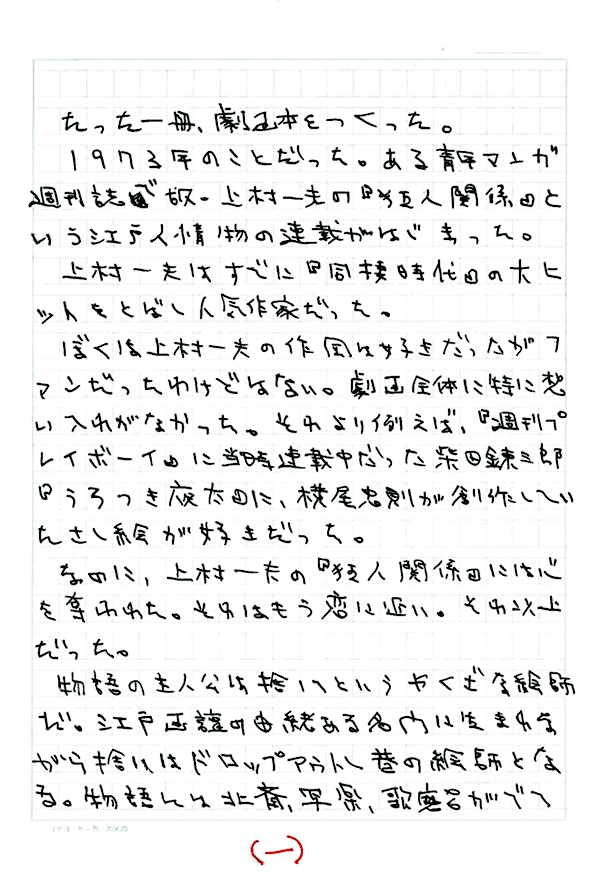 たった一冊、劇画本をつくった。
1973年のことだった。ある青年マンガ
週刊誌で故・上村一夫の『狂人関係』と
いう江戸人情物の連載がはじまった。
上村一夫はすでに『同棲時代』の大ヒ
ットをとばし人気作家だった。
ぼくは上村一夫の作風は好きだったがフ
ァンだったわけではない。劇画全体に特に思
い入れがなかった。それより例えば、『週刊プ
レイボーイ』に当時連載中だった柴田錬三郎
『うろつき夜太』に、横尾忠則が創作してい
たさし絵が好きだった。
なのに、上村一夫の『狂人関係』には心
を奪われた。それはもう恋に近い。それ以上
だった。
物語の主人公は捨八というやくざな絵師
だ。江戸画壇の由緒ある名門に生まれな
がら捨八はドロップアウトし巷の絵師とな
る。物語には北斎、早楽、歌麿呂がでて
コクヨ ケ-70 20×20
(一)